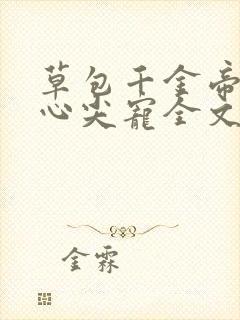 草包千金帝
心尖宠全文
金霖